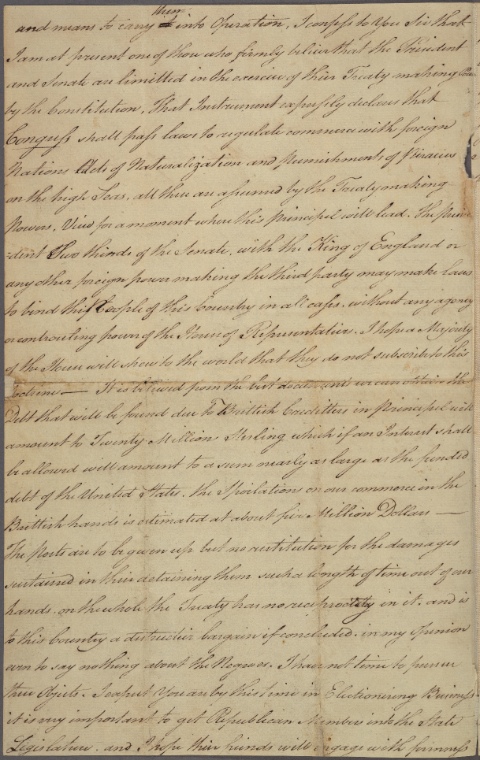 them
and means to carry into Operation, I confess to You Sir that
I am at present one of those who firmly believe that the President
and Senate are limitted in the exercise of their Treaty making
by the Constitution, That Instrument expressly declares that
Congress shall pass laws to regulate commerce with foreign
Nations Acts of Naturalization and punishment of Piracies
on the high Seas, all these are assumed by the Treaty making
Powers, View for a moment where this principel will lead, The Presi
-dent Two thirds of the Senate, with the King of England or
any other foreign power making the third party may make Laws
to bind the People of this Country in all cases, without any agency
or controuling power of the House of Representatives, I hope a Majority
of the House will show to the world that they do not subscribe to this
doctrine — It is believed from the best we can obtain the
Debt that will be found due to Brittish Creditters in principel will
amount to Twenty Million Sterling which if an Interest shall
be allowed will amount to a sum nearly as large as the funded
debt of the United States, the Spoilations on our commerce in the
Brittish hands is estimated at about five Million Dollars —
The Posts are to be given up but no restitution for the damages
sustained in their detaining them such a length of time out of our
hands, on the whole the Treaty has no reciprocity in it, and is
to this Country a destructive bargain if concluded, in my Opinion
even to say nothing about the Negroes, I have not time to pursue
these Objects, I expect You are by this time in Electionering Business
it is very important to get Republican Members into the State
Legislature, and I hope their friends will engage with firmness